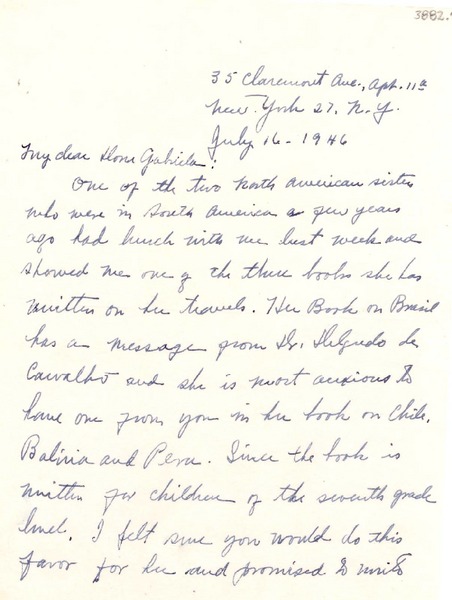 3882.
35 Claremont Ave., Apt. 11a
New York 27, N.Y.
July 16 - 1946
My dear Dona Gabriela:
One of the two North American sisters
who were in South America a few years
ago had lunch with me last week and
showed me one of the three books she has
written on her travels. Her Book on Brasil
has a message from Dr. Delgado de
Carvalho and she is most anxious to
have one from you in her book on Chile,
Bolivia and Peru. Since the book is
written for children of the seventh grade
level, I felt sure you would do this
favor for her and promised to write